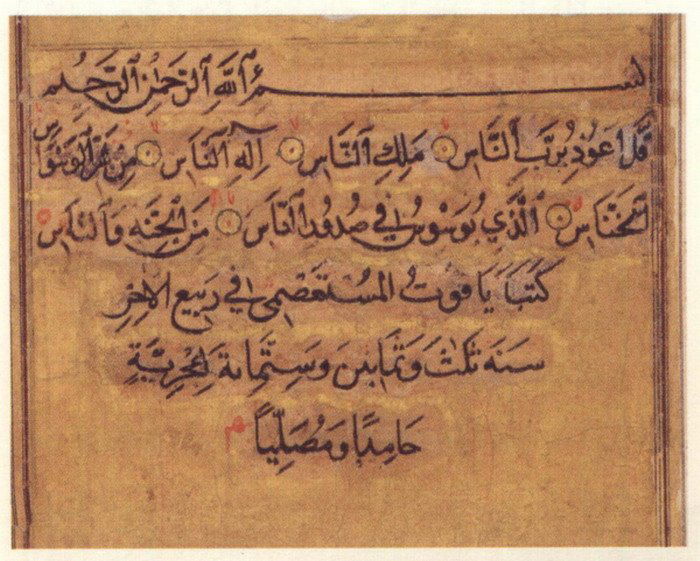 بسم ٱللَّهِ ٱلرَّحْمٰنِ ٱلرَّحِيمِ
قُلْ أَعُوذُ بِرَبِّ ٱلنَّاسِ مَلِكِ ٱلنَّاسِ إِلَهِ ٱلنَّاسِ مِن شَرِّ الْوَسْوَاسِ
ٱلْخَنَّاسِ ٱلَّذِي يُوَسْوِسُ فِي صُدُورِ ٱلنَّاسِ مِنَ الْجِنَّةِ وَٱلنَّاسِ
كَتَبَهُ يَاقُوتُ المُسْتَعْصِمِي فِي رَبِيعِ الآخِرِ
سَنَةَ ثَلَاثَ وَثَمَانِينَ وَسِتَّمِائَةَ الهِجْرِيَّةِ
حَامِدًا وَمُصَلِّيًا